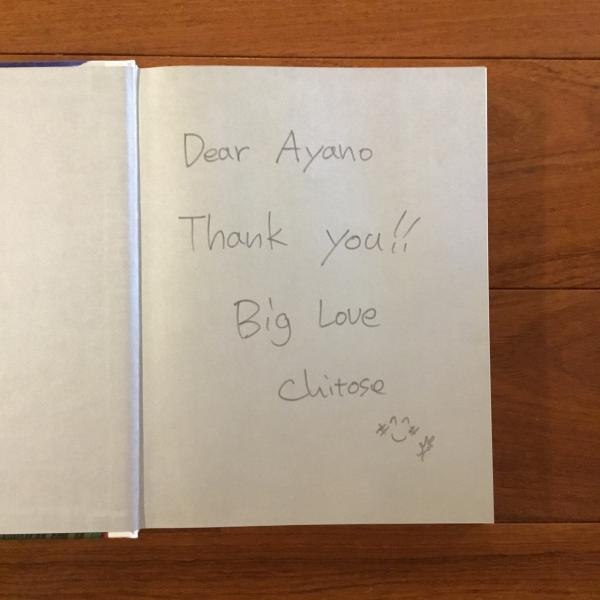 Dear Ayano
Thank you!!
Big Love
Chitose